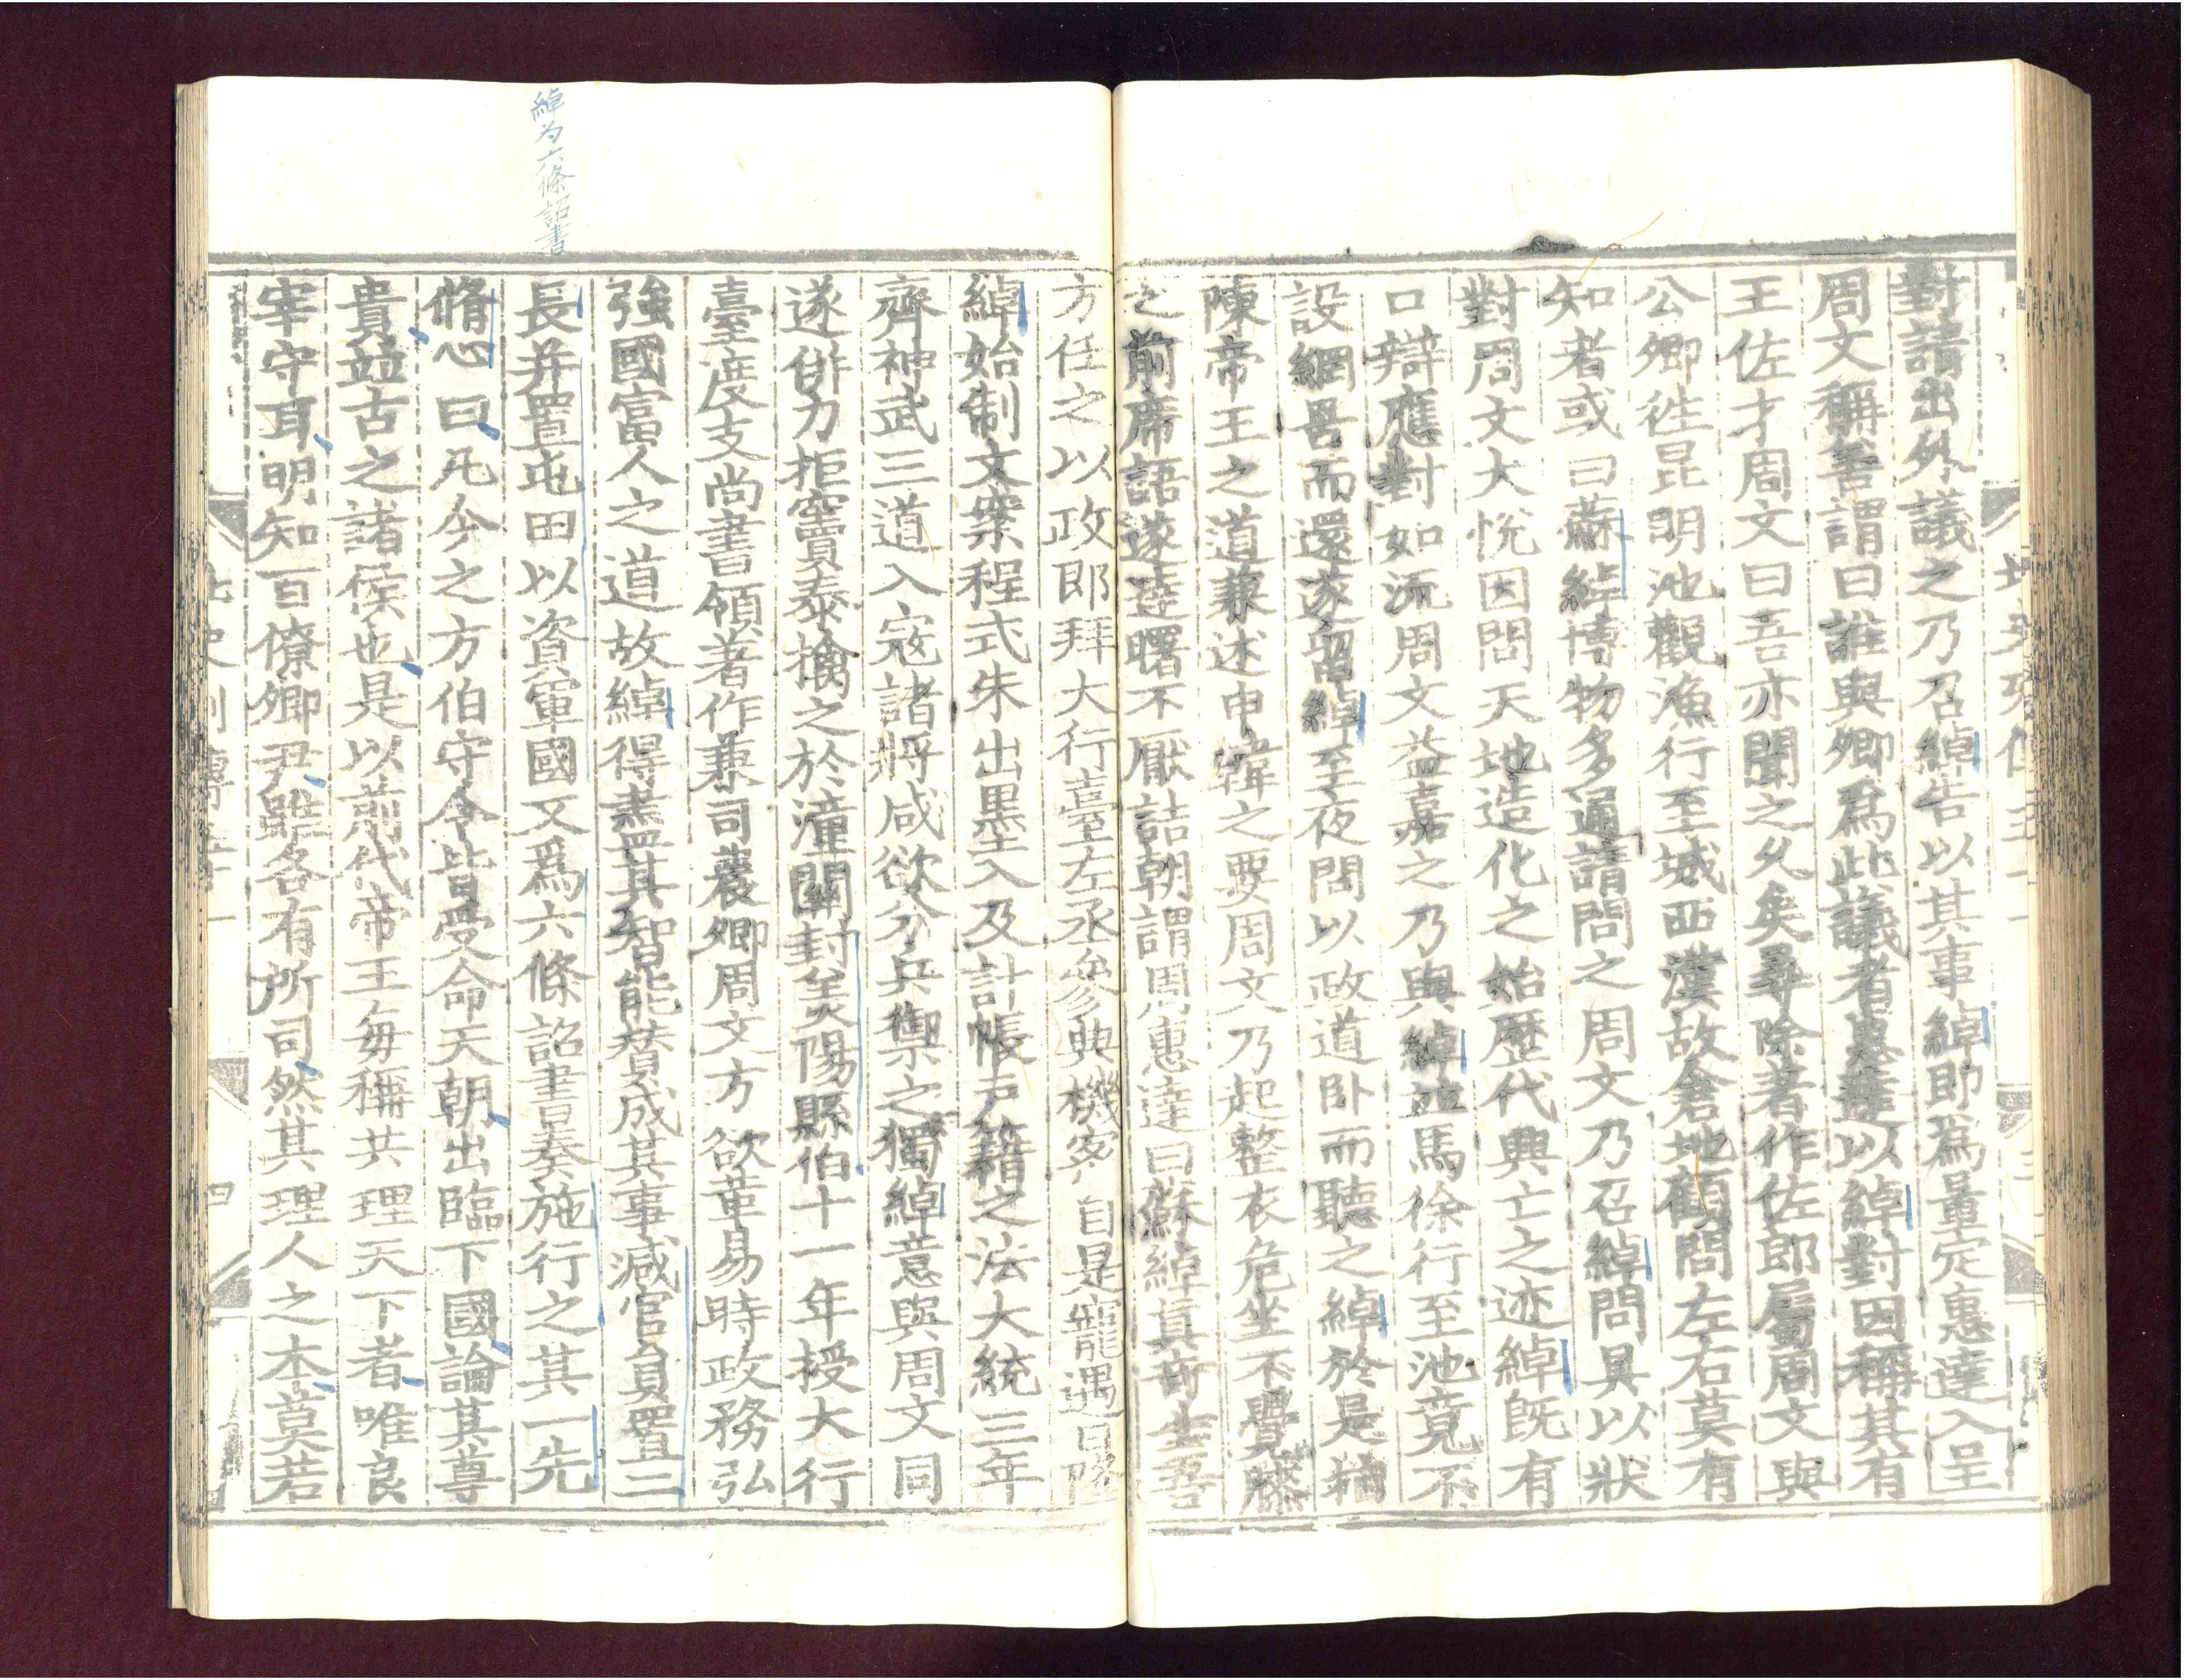 對請出外議之乃召綽告以其事綽卽爲量定惠達入呈
周文稱善謂曰誰與卿爲此議者惠達以綽對因稱其有
王佐才周文曰吾亦聞之久矣尋除著作佐郎屬周文與
公卿徃昆明池觀漁行至城西漢故倉地顧問左右莫有
知者或曰蘇綽博物多通請問之周文乃召綽問具以狀
對周文大悅因問天地造化之始歷代興亡之迹綽旣有
口辯應對如流周文益嘉之乃與綽並馬徐行至池竟不
設網罟而還遂留綽至夜問以政道卧而聽之綽於是指
陳帝王之道兼述申韓之要周文乃起整衣危坐不覺膝
之前席語遂達曙不厭詰朝謂周惠達曰蘇綽真竒士吾
方任之以政郎拜大行臺左丞叅典機密自是寵遇日隆
綽始制文案程式朱出墨入及計帳戶籍之法大統三年
齊神武三道入寇諸將咸欲分兵禦之獨綽意與周文同
遂併力拒竇泰擒之於潼關封美陽縣伯十一年授大行
臺度支尚書領著作兼司農卿周文方欲革易時政務弘
強國富人之道故綽得盡其智能賛成其事減官員置二
長并置屯田以資軍國又爲六條詔書奏施行之其一先
脩心曰凡今之方伯守令皆受命天朝出臨下國論其尊
貴並古之諸侯也是以前代帝王每稱共理天下者唯良
宰守耳明知百僚卿尹雖各有所司然其理人之本莫若
綽为六條詔書